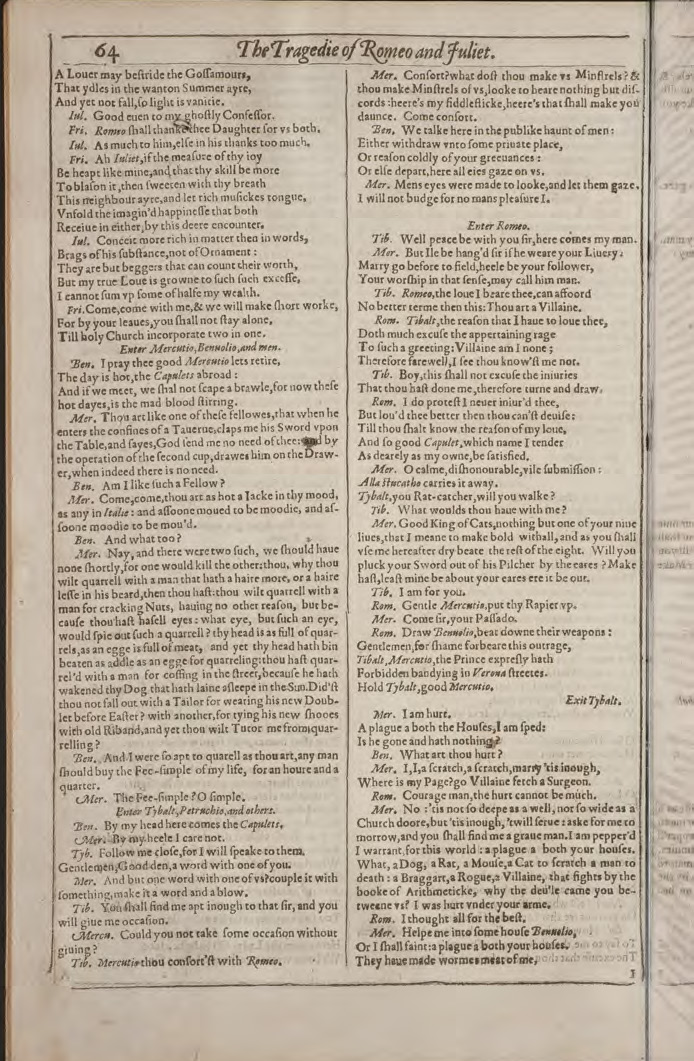 64 The Tragedie of Romeo and Juliet.
A Louer may beſtride the Goſſamours,
That ydles in the wanton Summer ayre,
And yet not fall, ſo light is vanitie.
Iul. Good euen to my ghoſtly Confeſſor.
Fri. Romeo ſhall thanke thee Daughter for vs both.
Iul. As much to him, elſe in his thanks too much.
Fri. Ah Iuliet, if the meaſure of thy ioy
Be heapt like mine, and that thy skill be more
To blaſon it, then ſweeten with thy breath
This neighbour ayre, and let rich muſickes tongue,
Vnfold the imagin'd happineſſe that both
Receiue in either, by this deere encounter.
Iul. Conceit more rich in matter then in words,
Brags of his ſubſtance, not of Ornament:
They are but beggers that can count their worth,
But my true Loue is growne to ſuch ſuch exceſſe,
I cannot ſum vp ſome of halfe my wealth.
Fri. Come, come with me, & we will make ſhort worke,
For by your leaues, you ſhall not ſtay alone,
Till holy Church incorporate two in one.
Enter Mercutio, Benuolio, and men.
Ben. I pray thee good Mercutio lets retire,
The day is hot, the Capulets abroad:
And if we meet, we ſhal not ſcape a brawle, for now theſe
hot dayes, is the mad blood ſtirring.
Mer. Thou art like one of theſe fellowes, that when he
enters the confines of a Tauerne, claps me his Sword vpon
the Table, and ſayes, God ſend me no need of thee: and by
the operation of the ſecond cup, drawes him on the Draw-
er, when indeed there is no need.
Ben. Am I like ſuch a Fellow?
Mer. Come, come, thou art as hot a Iacke in thy mood,
as any in Italie: and aſſoone moued to be moodie, and aſ-
ſoone moodie to be mou'd.
Ben. And what too?
Mer. Nay, and there were two ſuch, we ſhould haue
none ſhortly, for one would kill the other: thou, why thou
wilt quarrell with a man that hath a haire more, or a haire
leſſe in his beard, then thou haſt: thou wilt quarrell with a
man for cracking Nuts, hauing no other reaſon, but be-
cauſe thou haſt haſell eyes: what eye, but ſuch an eye,
would ſpie out ſuch a quarrell? thy head is as full of quar-
rels, as an egge is full of meat, and yet thy head hath bin
beaten as addle as an egge for quarreling: thou haſt quar-
rel'd with a man for coffing in the ſtreet, becauſe he hath
wakened thy Dog that hath laine aſleepe in the Sun. Did'ſt
thou not fall out with a Tailor for wearing his new Doub-
let before Eaſter? with another, for tying his new ſhooes
with old Riband, and yet thou wilt Tutor me from quar-
relling?
Ben. And I were ſo apt to quarell as thou art, any man
ſhould buy the Fee-ſimple of my life, for an houre and a
quarter.
Mer. The Fee-ſimple? O ſimple.
Enter Tybalt, Petruchio, and others.
Ben. By my head here comes the Capulets.
Mer. By my heele I care not.
Tyb. Follow me cloſe, for I will ſpeake to them.
Gentlemen, Good den, a word with one of you.
Mer. And but one word with one of vs? couple it with
ſomething, make it a word and a blow.
Tib. You ſhall find me apt inough to that ſir, and you
will giue me occaſion.
Mercu. Could you not take ſome occaſion without
giuing?
Tib. Mercutio thou conſort'ſt with Romeo.
Mer. Conſort? what doſt thou make vs Minſtrels? &
thou make Minſtrels of vs, looke to heare nothing but diſ-
cords: heere's my fiddleſticke, heere's that ſhall make you
daunce. Come conſort.
Ben. We talke here in the publike haunt of men:
Either withdraw vnto ſome priuate place,
Or reaſon coldly of your greeuances:
Or elſe depart, here all eies gaze on vs.
Mer. Mens eyes were made to looke, and let them gaze.
I will not budge for no mans pleaſure I.
Enter Romeo.
Tib. Well peace be with you ſir, here comes my man.
Mer. But Ile be hang'd ſir if he weare your Liuery:
Marry go before to field, heele be your follower,
Your worſhip in that ſenſe, may call him man.
Tib. Romeo, the loue I beare thee, can affoord
No better terme then this: Thou art a Villaine.
Rom. Tibalt, the reaſon that I haue to loue thee,
Doth much excuſe the appertaining rage
To ſuch a greeting: Villaine am I none;
Therefore farewell, I ſee thou know'ſt me not.
Tib. Boy, this ſhall not excuſe the iniuries
That thou haſt done me, therefore turne and draw.
Rom. I do proteſt I neuer iniur'd thee,
But lou'd thee better then thou can'ſt deuiſe:
Till thou ſhalt know the reaſon of my loue,
And ſo good Capulet, which name I tender
As dearely as my owne, be ſatisfied.
Mer. O calme, diſhonourable, vile ſubmiſſion:
Alla ſtucatho carries it away.
Tybalt, you Rat-catcher, will you walke?
Tib. What woulds thou haue with me?
Mer. Good King of Cats, nothing but one of your nine
liues, that I meane to make bold withall, and as you ſhall
vſe me hereafter dry beate the reſt of the eight. Will you
pluck your Sword out of his Pilcher by the eares? Make
haſt, leaſt mine be about your eares ere it be out.
Tib. I am for you.
Rom. Gentle Mercutio, put thy Rapier vp.
Mer. Come ſir, your Paſſado.
Rom. Draw Benuolio, beat downe their weapons:
Gentlemen, for ſhame forbeare this outrage,
Tibalt, Mercutio, the Prince expreſly hath
Forbidden bandying in Verona ſtreetes.
Hold Tybalt, good Mercutio.
Exit Tybalt.
Mer. I am hurt.
A plague a both the Houſes, I am ſped:
Is he gone and hath nothing?
Ben. What art thou hurt?
Mer. I, I, a ſcratch, a ſcratch, marry 'tis inough,
Where is my Page? go Villaine fetch a Surgeon.
Rom. Courage man, the hurt cannot be much.
Mer. No: 'tis not ſo deepe as a well, nor ſo wide as a
Church doore, but 'tis inough, 'twill ſerue: aske for me to
morrow, and you ſhall find me a graue man. I am pepper'd
I warrant, for this world: a plague a both your houſes.
What, a Dog, a Rat, a Mouſe, a Cat to ſcratch a man to
death: a Braggart, a Rogue, a Villaine, that fights by the
booke of Arithmeticke, why the deu'le came you be-
tweene vs? I was hurt vnder your arme.
Rom. I thought all for the beſt.
Mer. Helpe me into ſome houſe Benuolio,
Or I ſhall faint: a plague a both your houſes.
They haue made wormes meat of me,
I